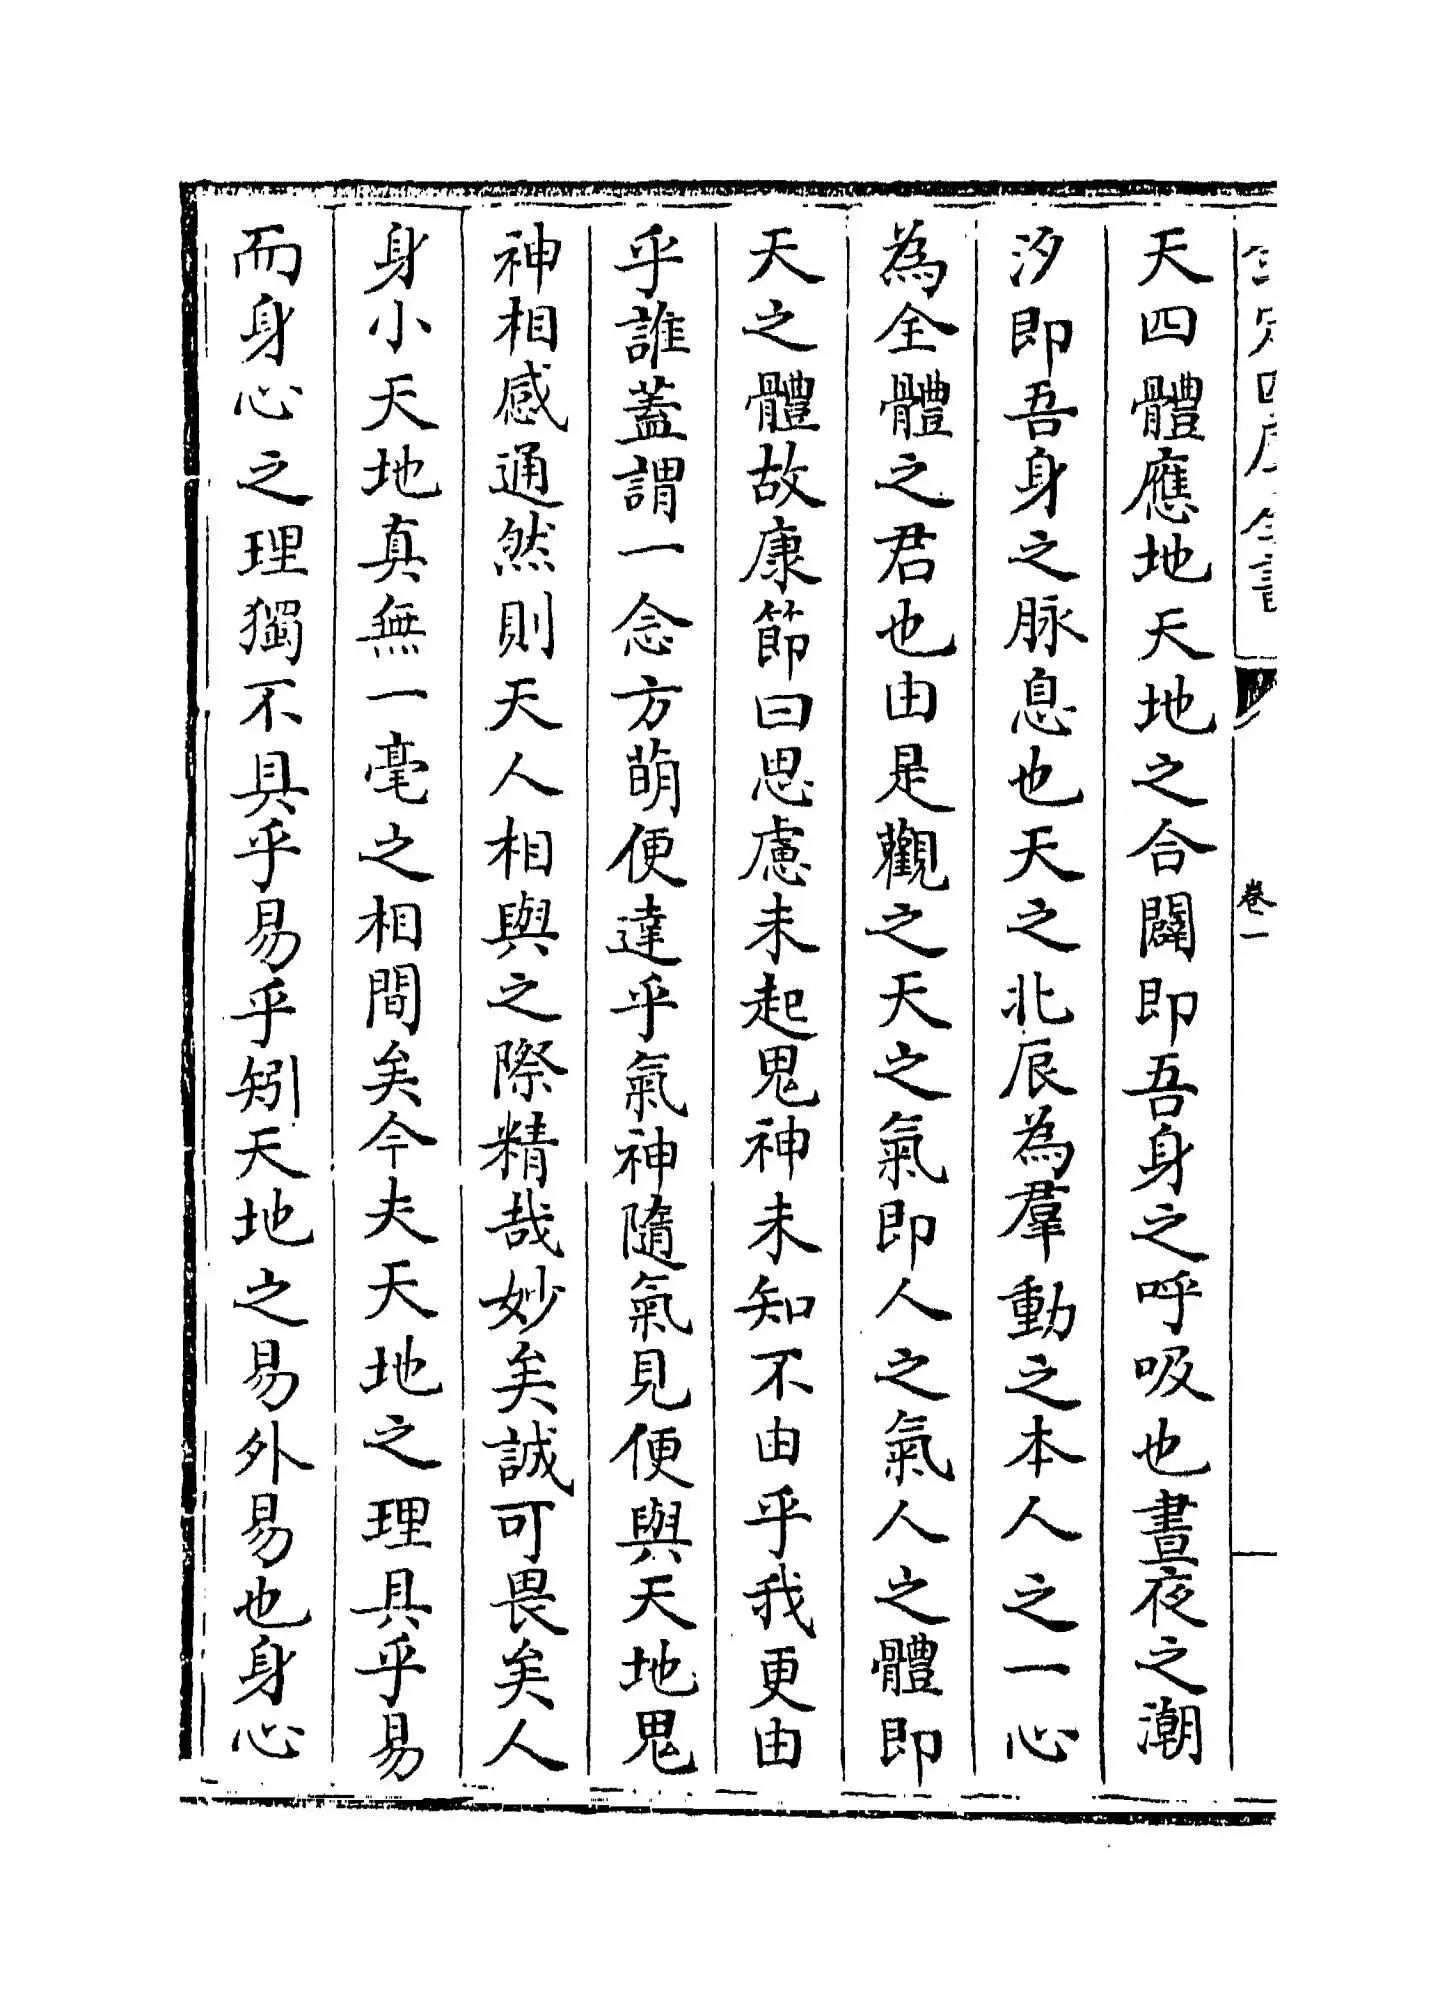 欽定四庫全書
卷一
天四體應地天地之合闢即吾身之呼吸也晝夜之潮
汐即吾身之脉息也天之北辰為羣動之本人之一心
為全體之君也由是觀之天之氣即人之氣人之體即
天之體故康節曰思慮未起鬼神未知不由乎我更由
乎誰蓋謂一念方萌便達乎氣神隨氣見便與天地鬼
神相感通然則天人相與之際精哉妙矣誠可畏矣人
身小天地真無一毫之相間矣今夫天地之理具乎易
而身心之理獨不具乎易乎矧天地之易外易也身心